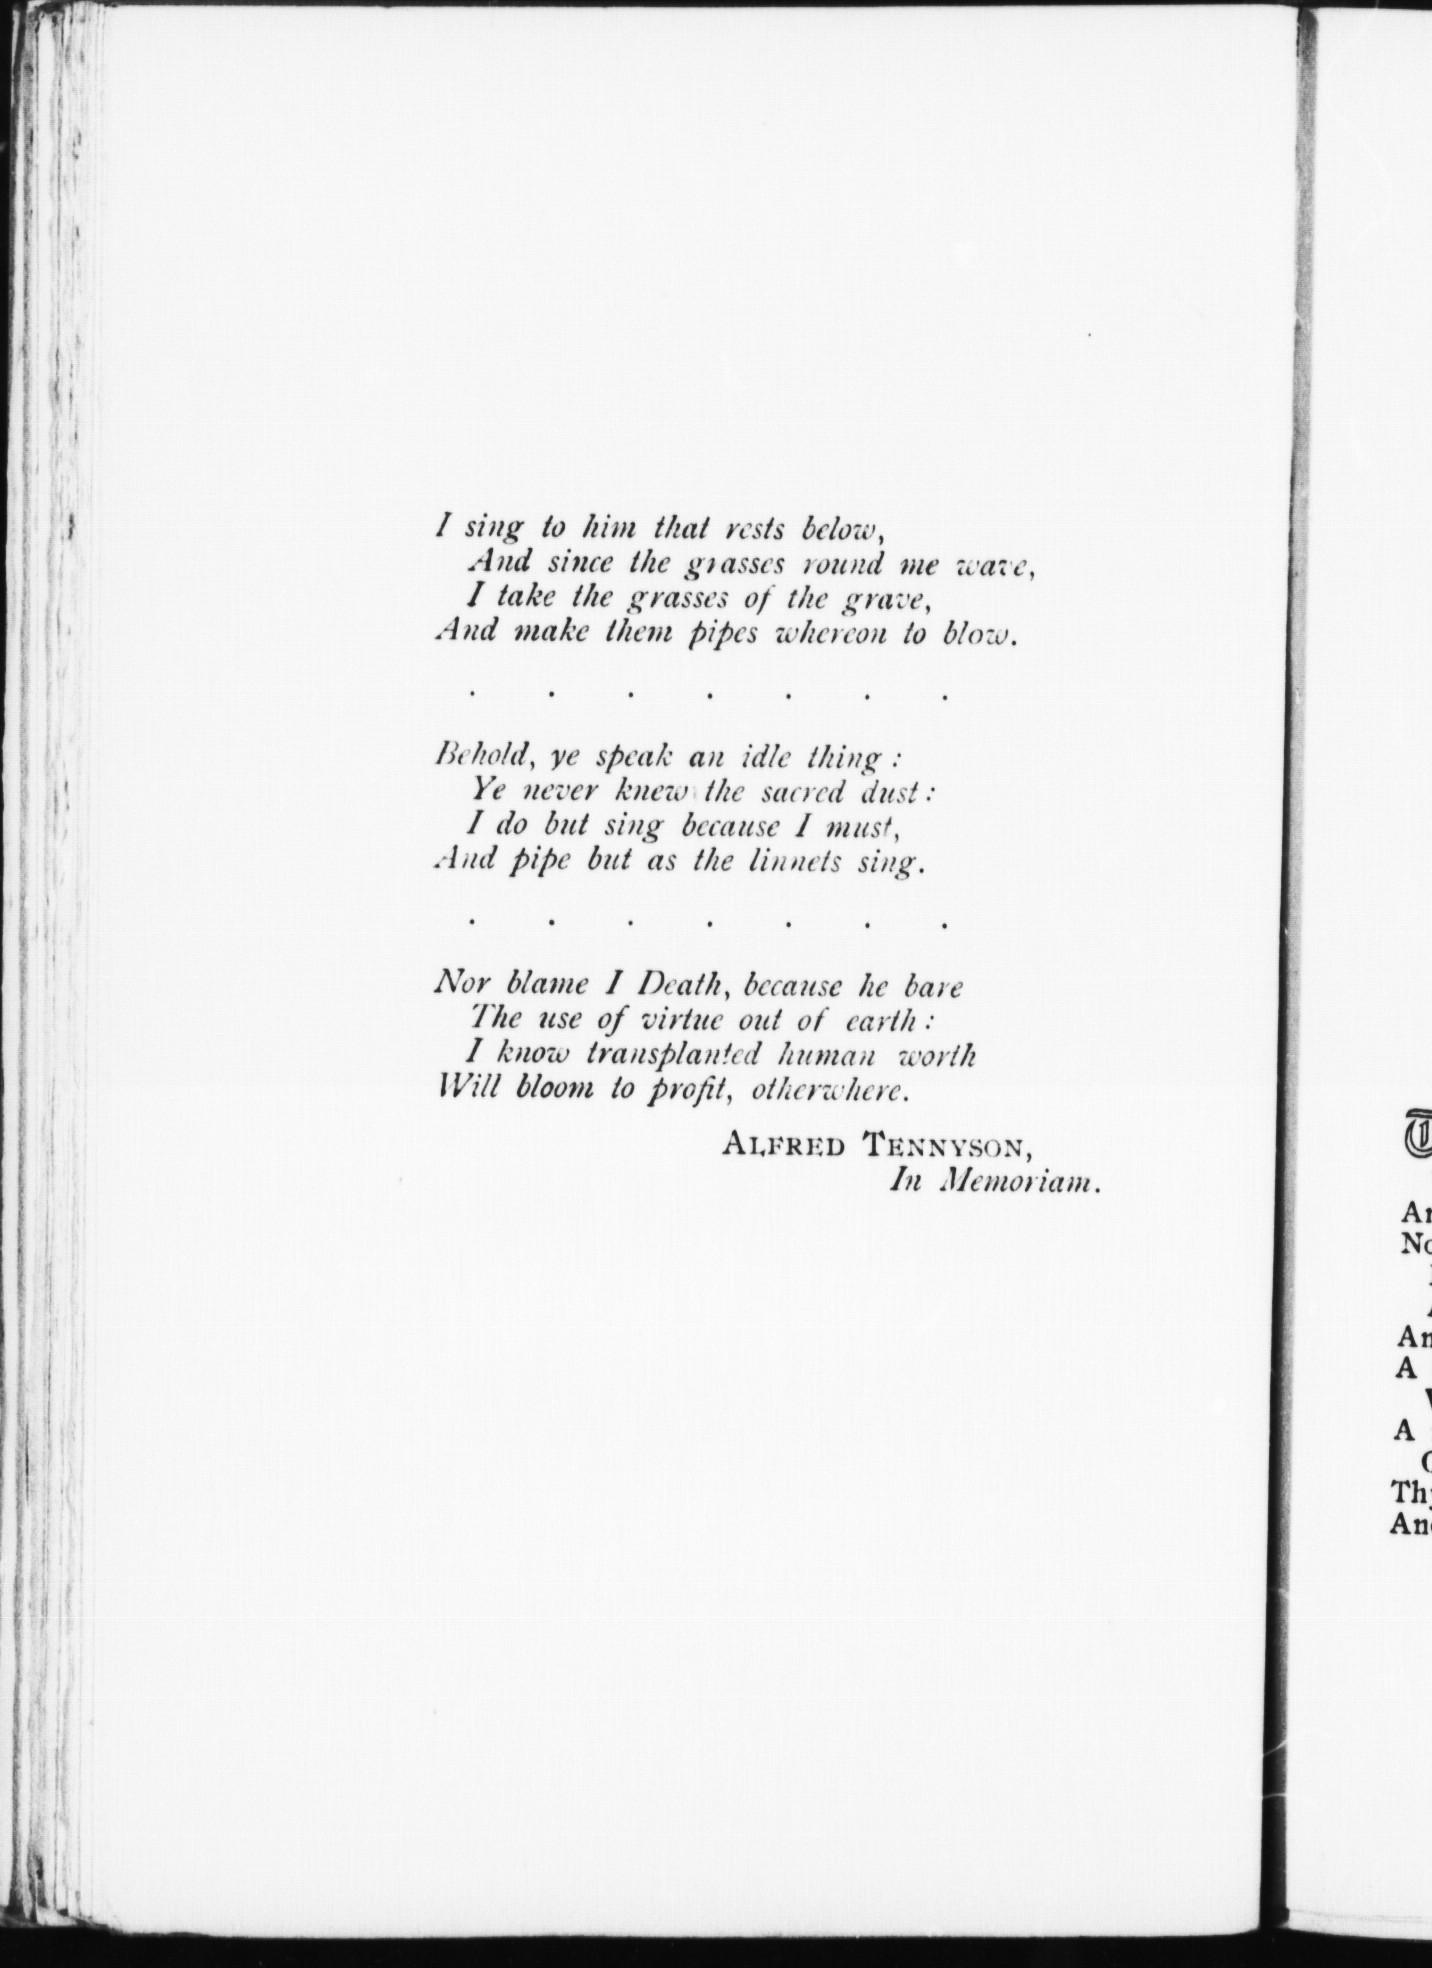 I sing to him that rests below,
And since the grasses round me wave,
I take the grasses of the grave,
And make them pipes whereon to blow.
. . . . . . .
Behold, ye speak an idle thing :
Ye never knew the sacred dust :
I do but sing because I must,
And pipe but as the linnets sing.
. . . . . . .
Nor blame I Death, because he bare
The use of virtue out of earth :
I know transplanted human worth
Will bloom to profit, otherwhere.
ALFRED TENNYSON,
In Memoriam.
A
A